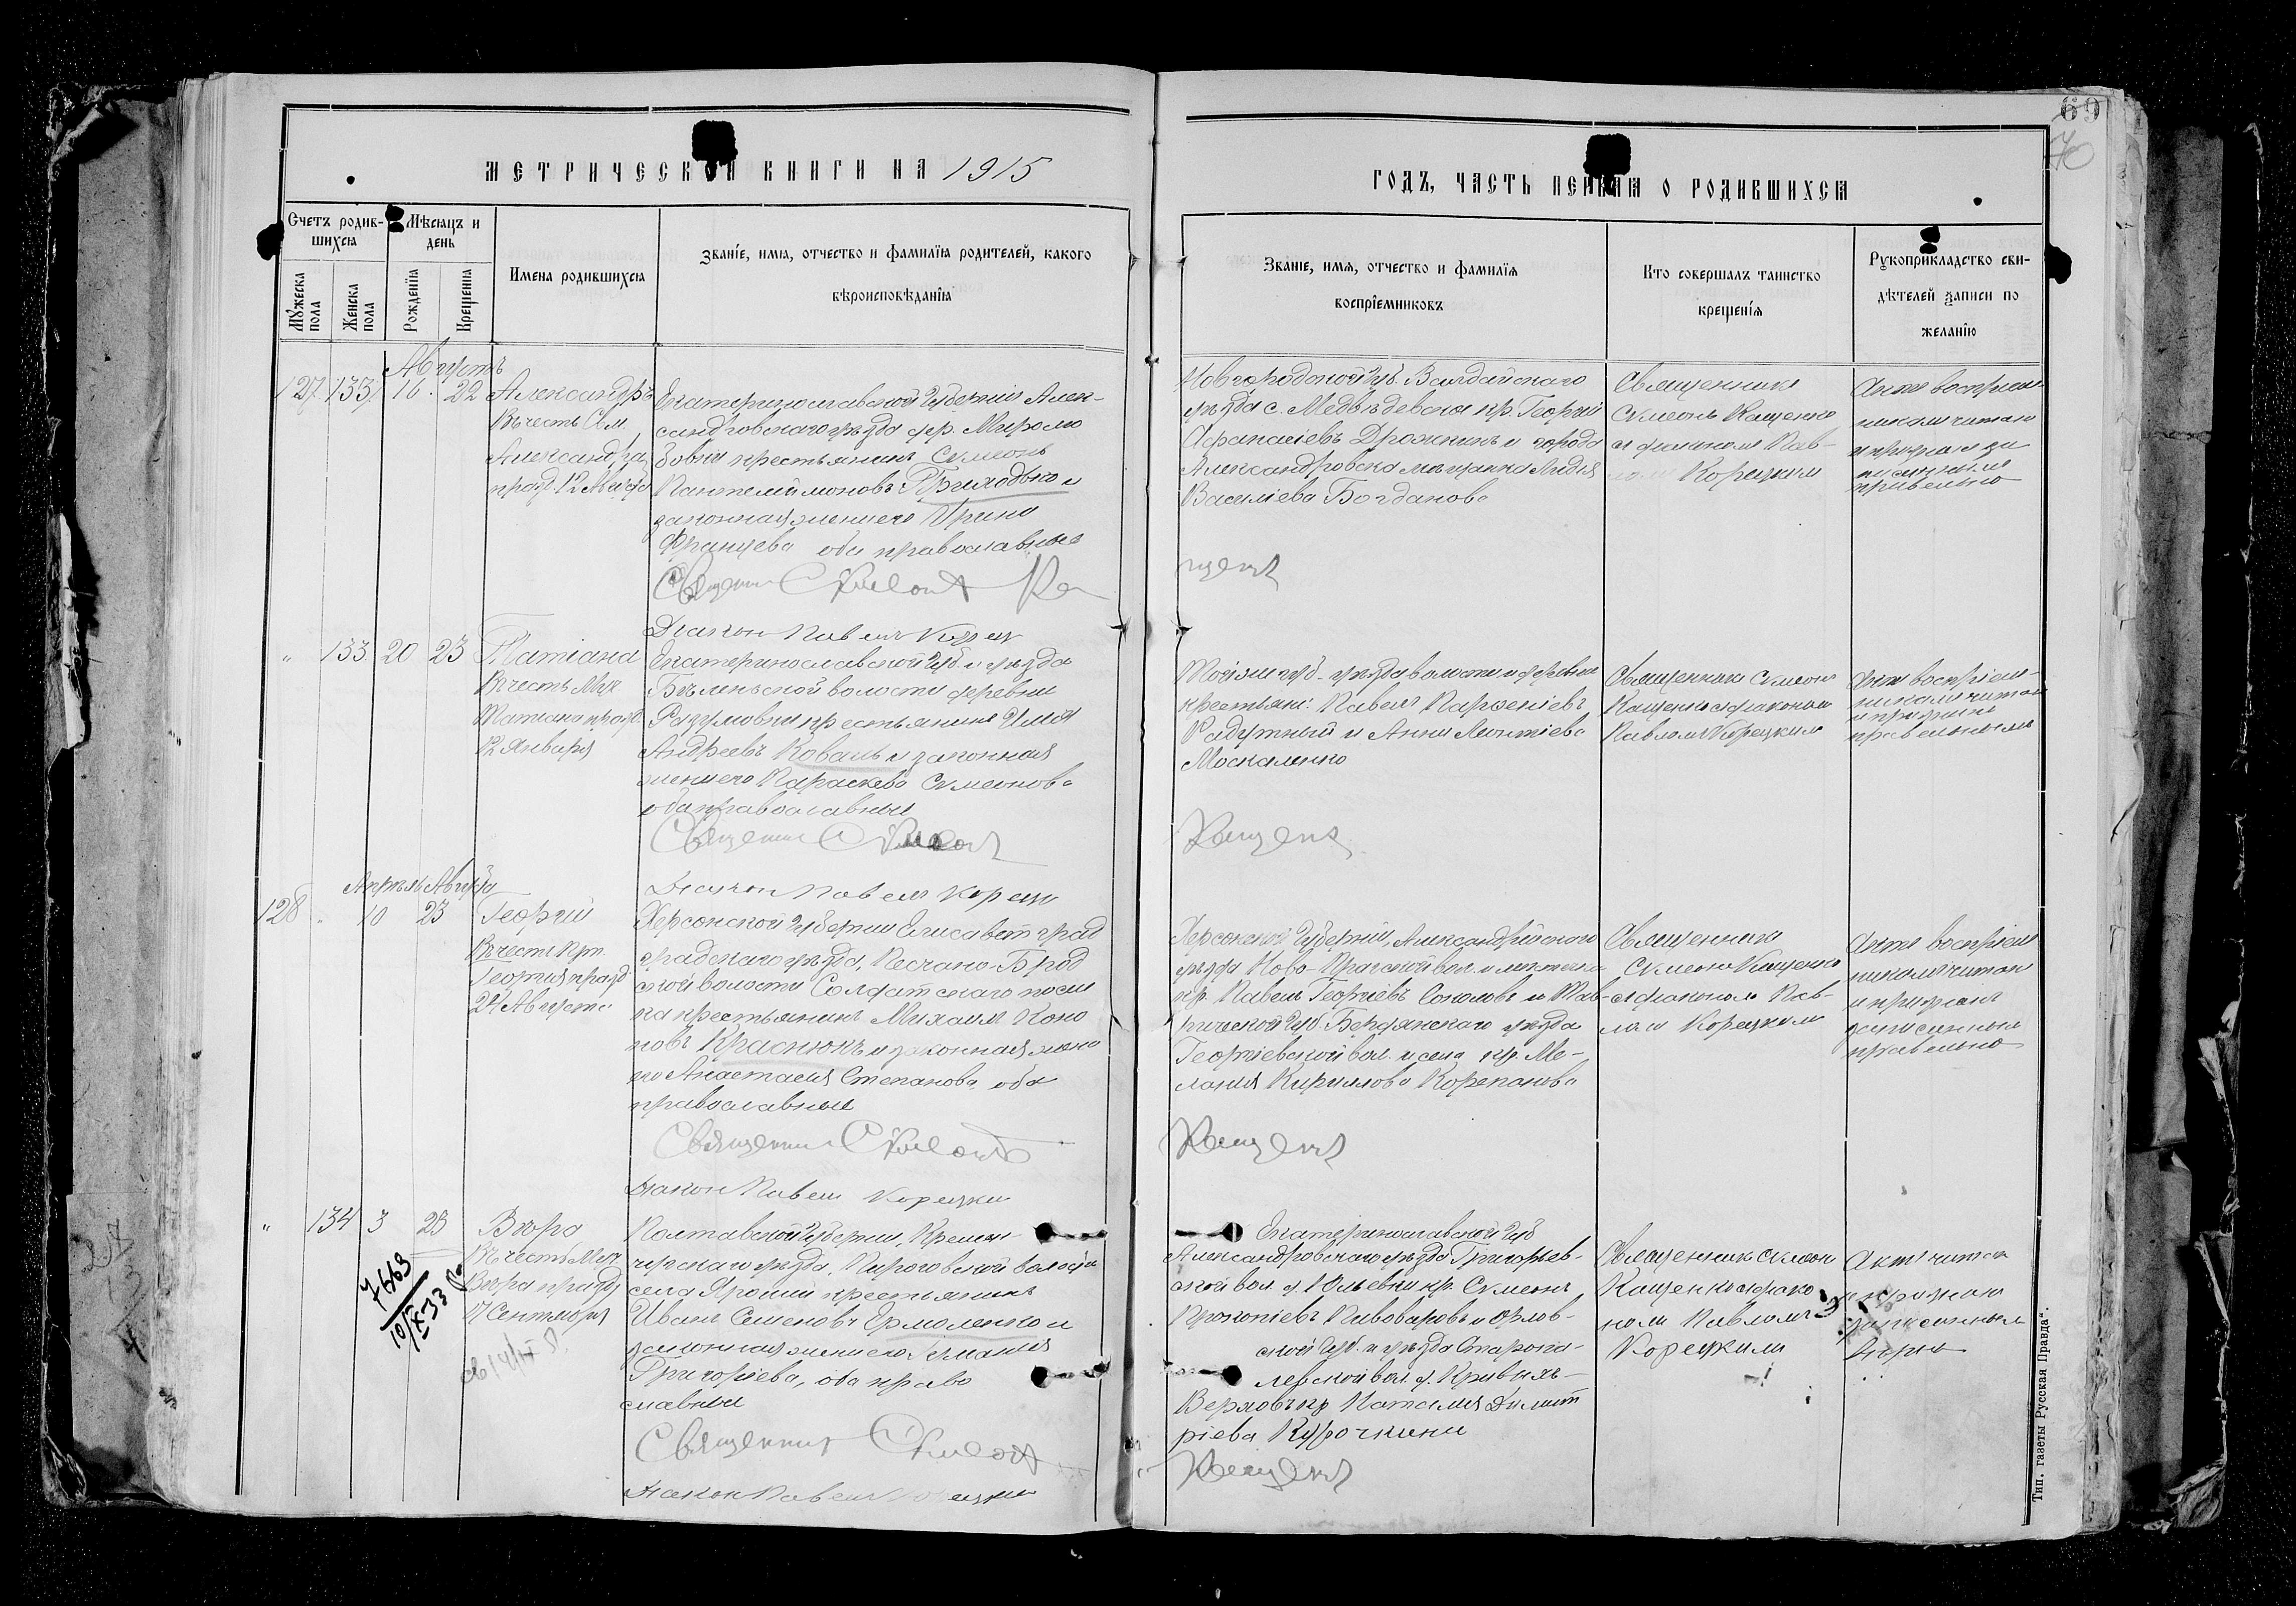 69
МЕТРИЧЕСКОЙ КНИГИ НА 1915
ГОДЪ, ЧАСТЬ ПЕРВАЯ О РОДИВШИХСЯ
Счетъ родив-
шихся
Мѣсяцъ и
день
Мужеска
пола
Женска
пола
Рожденія
Крещенія
Имена родившихся
Званіе, имя, отчество и фамилія родителей, какого
вѣроисповѣданія
Званіе, имя, отчество и фамилія
воспріемниковъ
Кто совершалъ таинство
крещенія
Рукоприкладство сви-
дѣтелей записи по
желанію
Августъ
127 133 16 22
Александръ
Въ честь Свм.
Александра
празд. 12 Августа
Екатеринославской Губерніи Алек-
сандровскаго уѣзда дер. Миролю
бовки крестьянинъ Сѵмеонъ
Пантелеимоновъ Приходько и
законная жена его Ирина
Францева оба православные
Священник Сѵмеонъ Ка
Діаконъ Павелъ Корецк
Новгородской Губ. Валдайскаго
уѣзда с. Медвѣдевска кр. Георгій
Афанасіевъ Дрожжинъ и города
Александровска мѣщанка Лидія
Василіева Богданова
щенко
Священникъ
Сѵмеонъ Кащенко
съ діакономъ Пав-
ломъ Корецким
Актъ воспріем-
никам читан
и признан за
писанным
правельно
" 133 20 23
Татіана
Въ честь Муч.
Татіаны празд.
12 Января
Екатеринославской Губ. и уѣзда
Бѣленьской волости деревни
Разумовки крестьянинъ Илія
Андреевъ Коваль и законная
жена его Параскева Сѵмеонова
оба православные
Священник Сѵмеонъ
Діаконъ Павелъ Корецк
Той же губ. уѣзда волости и деревни
крестьяне: Павелъ Парѳеніевъ
Радутный и Анна Леонтіева
Москаленко
Кащенко
Священникъ Сѵмеонъ
Кащенко съ діакономъ
Павломъ Корецким
Актъ воспріем-
никам читан
и признанъ
правельнымъ
Апрѣль Августа
128 " 10 23
Георгій
Въ честь Прп.
Георгія празд
24 Августа
Херсонской Губерніи Елисаветград
градскаго уѣзда, Песчано-Брод
ской волости Солдатскаго посел
ка крестьянинъ Михаилъ Коно
новъ Краснюкъ и законная жена
его Анастасія Степанова оба
православные
Священник Сѵмеонъ
Діаконъ Павелъ Корецки
Херсонской Губерніи, Александрійскаго
уѣзда Ново-Пражской вол. и мѣстечка
кр. Павелъ Георгіевъ Соколовъ и Тав-
рической Губ. Бердянскаго уѣзда
Георгіевской вол. и села кр. Ме-
ланія Кириллова Корепанова
Кащенко
Священникъ
Сѵмеонъ Кащенко
съ діакономъ Пав-
ломъ Корецким
Актъ воспріем
никам читан
и признанъ
записанным
правельно
" 134 3 23
Вѣра
Въ честь Муч
Вѣры празд
17 Сентября
7663
10/IX 33
Полтавской Губерніи, Кремен-
чугскаго уѣзда, Пироговской волости
села Яроши крестьянинъ
Иванъ Семеновъ Ермоленко и
законная жена его Меланія
Григоріева, оба право
славные
Священник Сѵмеонъ
Діаконъ Павелъ Корецки
Екатеринославской Губ
Александровскаго уѣзда Григорьев-
ской вол. д. Юльевки кр. Сѵмеонъ
Прокопіевъ Пивоваровъ и Орлов-
ской Губ. и уѣзда
вол. д. Кривыхъ-
Верховъ кр Наталія Димит
ріева Курочкина
Кащенко
Священникъ Сѵмеонъ
Кащенко съ діако
номъ Павломъ
Корецким
Актъ читан
и признан
записанным
вѣрно
Тип. газеты „Русская Правда“.